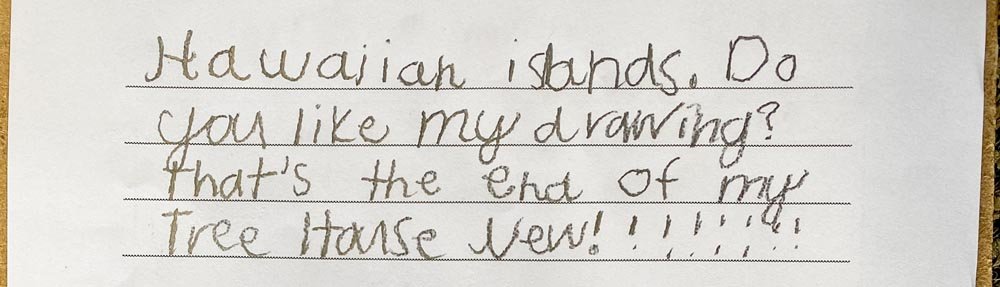 Hawaiian islands. Do
you like my drawing?
that's the end of my
Tree House Vew!!!!!!!!!